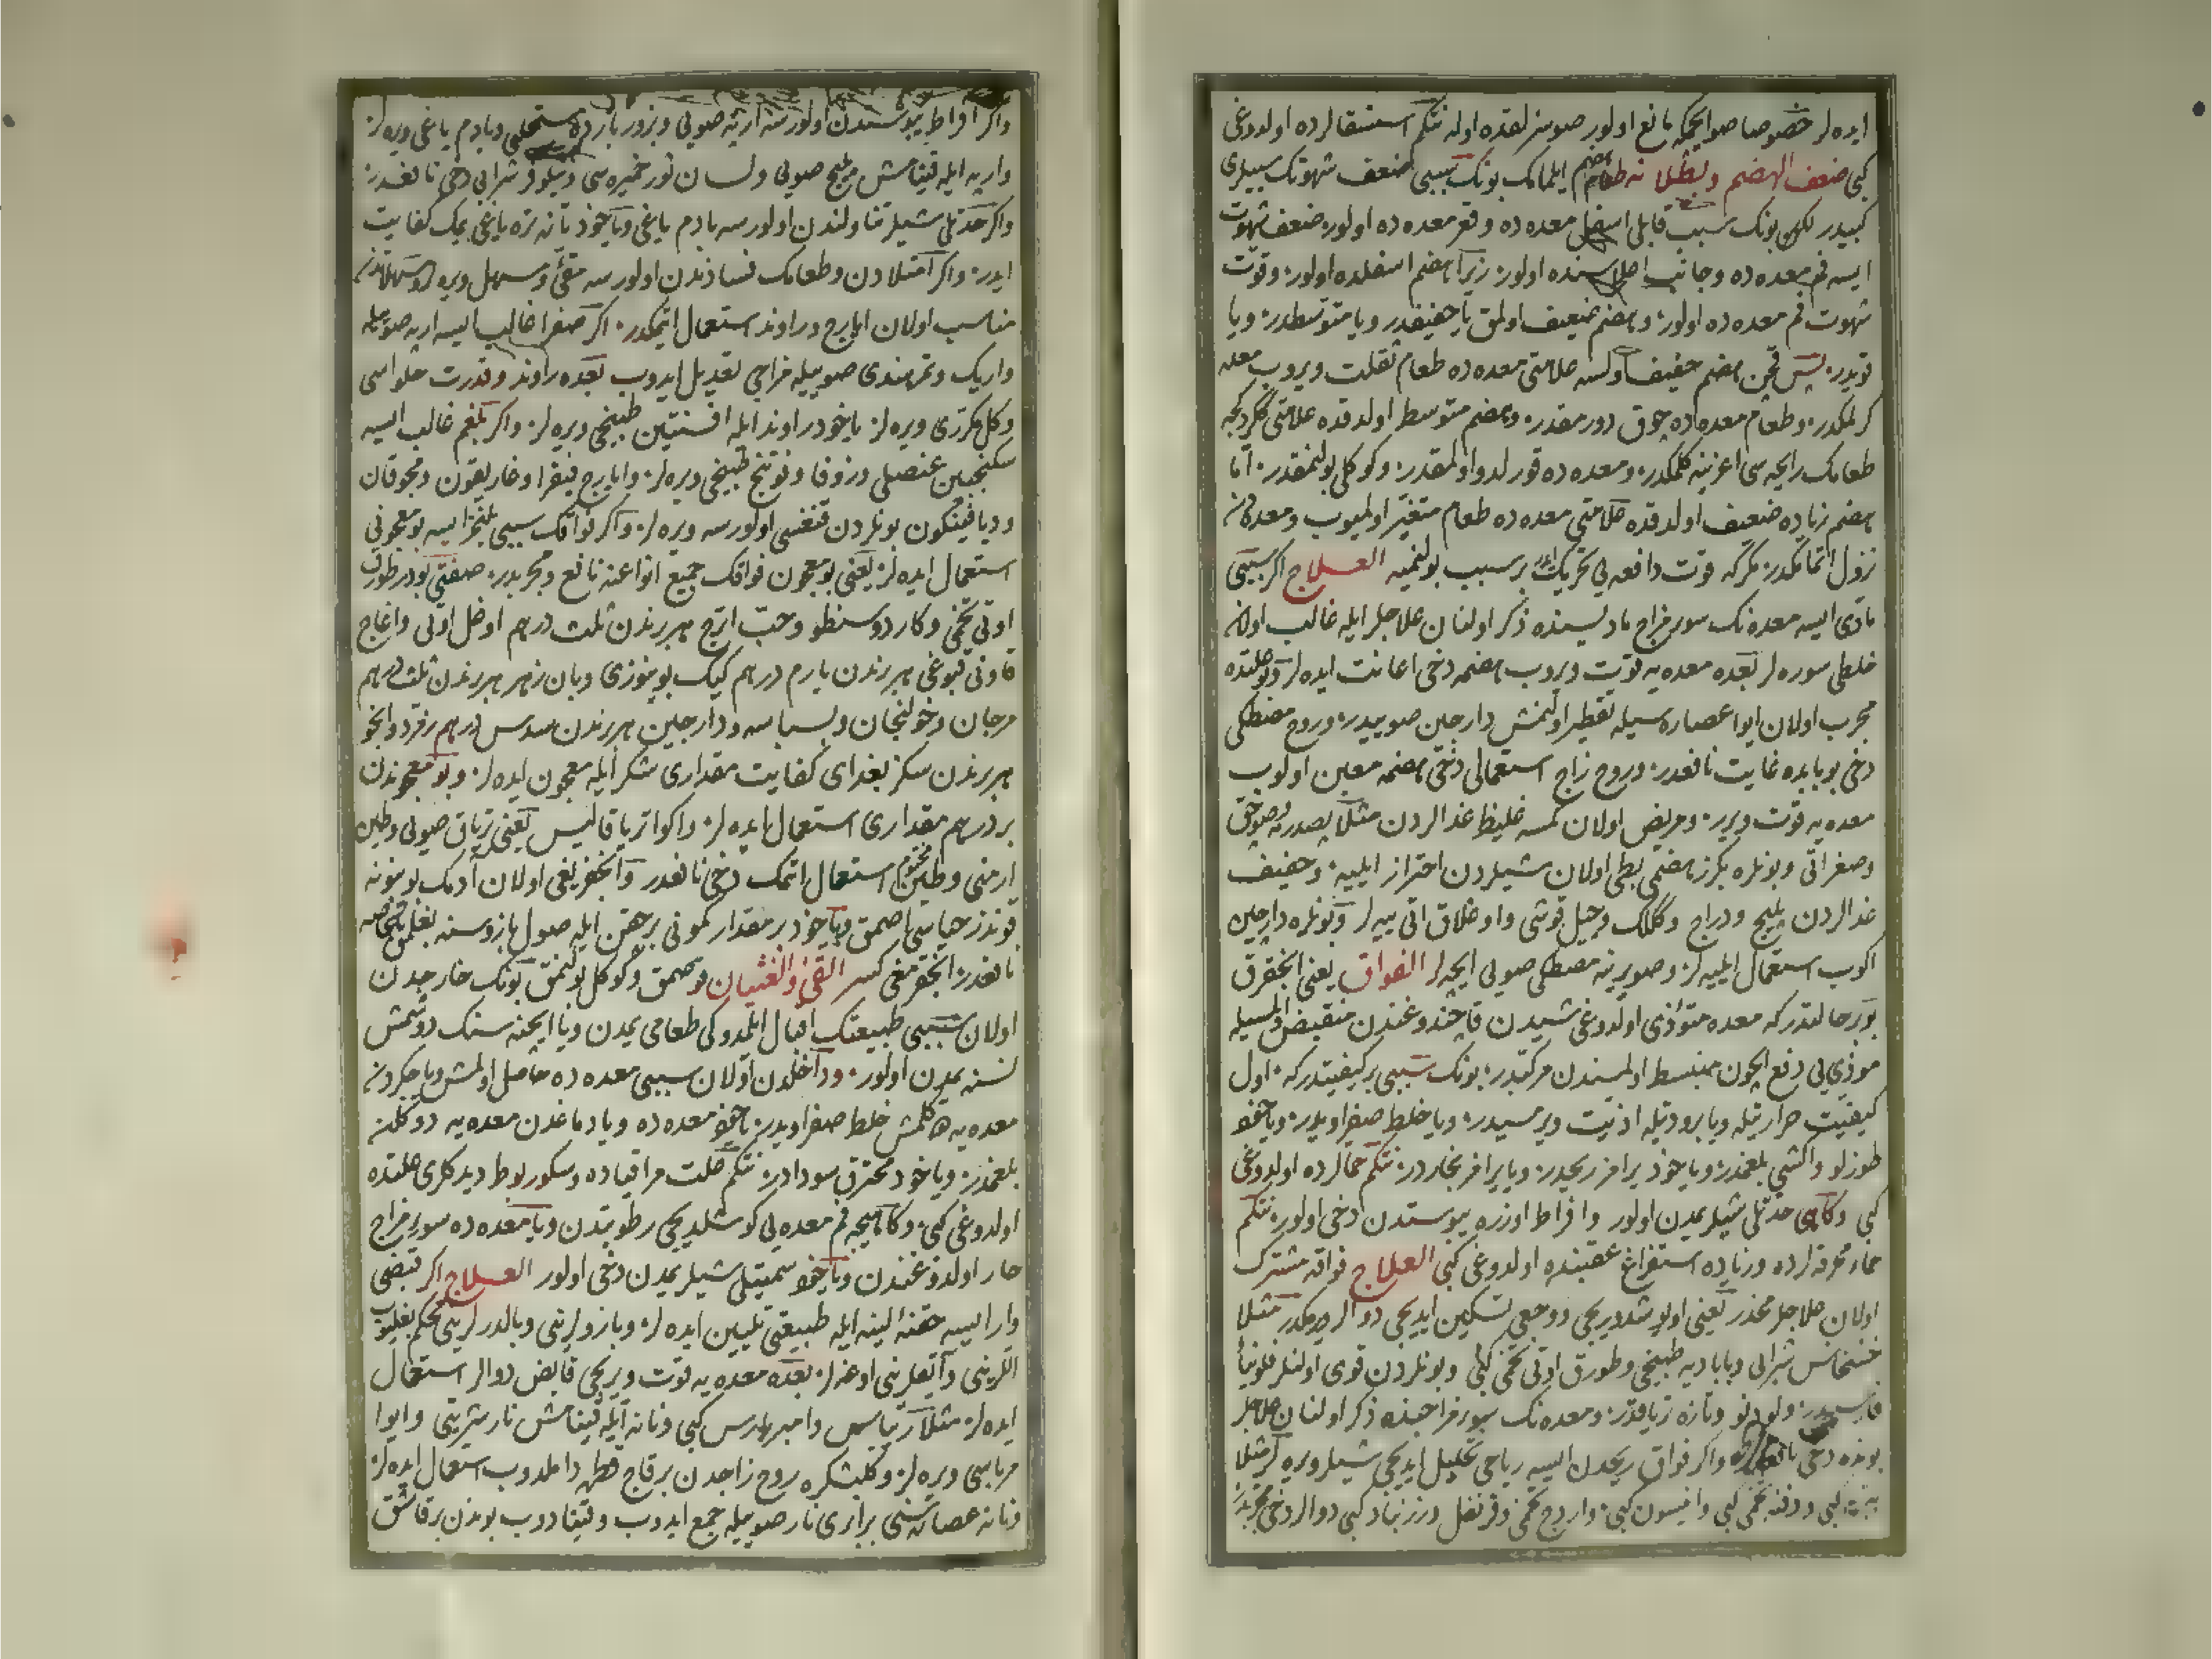 ایده‌لر خصوصا صو ایچمکه مانع اولور صوسزلقده اوله نتکم استسقالرده اولدوغی
کبی ضعف الهضم وبطلانه طعام هضم ایلمامک بونک سببی ضعف شهوتک سببلری
کبیدر لکن بونک سبب قابلی اسفل معده‌ده وقعر معده‌ده اولور ضعف شهوت
ایسه فم معده‌ده وجانب اعلاسنده اولور زیرا هضم اسفلده اولور وقوت
شهوت فم معده‌ده اولور وهضم ضعیف اولمق یا خفیفدر ویا متوسطدر ویا
قویدر پس قچن هضم خفیف اولسه علامتی معده‌ده طعام ثقلت ویروب معده
کرلمکدر وطعام معده‌ده چوق دورمقدر وهضم متوسط اولدقده علامتی ککردکجه
طعامک رایحه‌سی اغزینه کلمکدر ومعده‌ده قورلدو اولمقدر وکوکل بولنمقدر اما
هضم زیاده ضعیف اولدقده علامتی معده‌ده طعام متغیر اولمیوب ومعده‌دن
نزول اتمامکدر مکرکه قوت دافعه‌یی تحریک ایدر بر سبب بولنمیه العلاج اکر سببی
مادی ایسه معده‌نک سوء مزاج مادیسنده ذکر اولنان علاجلر ایله غالب اولان
خلطی سوره‌لر بعده معده‌یه قوت ویروب هضمه دخی اعانت ایده‌لر وبو علتده
مجرب اولان ایوا عصاره‌سیله تقطیر اولنمش دارچین صوییدر وروح مصطکی
دخی بو بابده غایت نافعدر وروح زاج استعمالی دخی هضمه معین اولوب
معده‌یه قوت ویریر ومریض اولان کمسه غلیظ غدالردن مثلا بصدرمه وصوجق
وصغر اتی وبونلره بکزر هضمی بطی اولان شیلردن احتراز ایلیه وخفیف
غدالردن پلیج ودراج وککلک وچیل قوشی واوغلاق اتی ییه‌لر وبونلره دارچین
اکوب استعمال ایلیه‌لر وصو یرینه مصطکی صویی ایچه‌لر الفواق یعنی انجقرق
بو بر حالتدر که معده متؤذی اولدوغی شیدن قاچندوغندن منقبض اولمسیله
موذی‌یی دفع ایچون منبسط اولمسندن مرکبدر بونک سببی بر کیفیتدر که اول
کیفیت حرارتیله ویا برودتیله اذیت ویرمسیدر ویا خلط صفراویدر ویاخود
طوزلو واکشی بلغمدر ویاخود بر افز ریحدر ویا بر افز بخاردر نتکم حمالرده اولدوغی
کبی وکاهی حدتلی شیلر یمدن اولور وافراط اوزره یبوستدن دخی اولور نتکم
حماء محرقه‌لرده وزیاده استفراغ عقبنده اولدوغی کبی العلاج فواقه مشترک
اولان علاجلر مخدر یعنی اویوشدیریجی ووجعی تسکین ایدیجی دوالر ویرمکدر مثلا
خشخاش شرابی وبابادیه طبیخی وطورق اوتی تخمی کبی وبونلردن قوی اولنلر فلونیاء
فارسیدر ولودنو وتازه تریاقدر ومعده‌نک سوء مزاجنده ذکر اولنان علاجلر
بونده دخی نافعدر واکر فواق ریحدن ایسه ریاحی تحلیل ایدیجی شیلر ویره‌لر مثلا
کبی ودفنه تخمی کبی وانیسون کبی واردج تخمی وقرنفل وزرنباد کبی دوالر دخی مجربدر
واکر افراط یبوستدن اولورسه ارپه صویی وبزور بارده مستحلبی وبادم یاغی ویره‌لر
وارپه ایله قینامش پلیج صویی ولسان ثور خمیره‌سی ونیلوفر شرابی دخی نافعدر
واکر حدتلی شیلر تناولندن اولورسه بادم یاغی ویاخود تازه تره یاغی یمک کفایت
ایدر واکر امتلادن وطعامک فسادندن اولورسه مقئ ومسهل ویره‌لر ومسهلاتدن
مناسب اولان ایارج وراوند استعمال ایتمکدر اکر صفرا غالب ایسه ارپه صوییله
واریک وتمرهندی صوییله مزاجی تعدیل ایدوب بعده راوند وقدرت حلواسی
وکل مکرری ویره‌لر یاخود راوند ایله افسنتین طبیخی ویره‌لر واکر بلغم غالب ایسه
سکنجبین عنصلی وزوفا وفوتنج طبیخی ویره‌لر وایارج فیقرا وغاریقون ومحوقان
ودیافینکون بونلردن قنغسی اولورسه ویره‌لر واکر فواقک سببی بلغم ایسه بو معجونی
استعمال ایده‌لر یعنی بو معجون فواقک جمیع انواعنه نافع ومجربدر صفتی بودر طورق
اوتی تخمی وکاردوسنطو وحب اترج هر برندن ثلث درهم اوضل اوتی واغاج
قاونی قبوغی هر برندن یارم درهم کیک بوینوزی وبان زهر هر برندن ثلث درهم
مرجان وخولنجان وبسباسه ودارچین هر برندن سدس درهم زمرد وانجو
هر برندن سکز بغدای کفایت مقداری شکر ایله معجون ایده‌لر وبو معجوندن
بر درهم مقداری استعمال ایده‌لر واکوا تریاقالیس یعنی تریاق صویی وطین
ارمنی وطین مختوم استعمال اتمک دخی نافعدر وانجقریغی اولان آدمک بوینونه
قوندز خیاسی اصمق ویاخود بر مقدار کمونی برهقن ایله صول بازوسنه بغلمق
نافعدر انجقرمغی کسر القئ والغثیان قوصمق وکوکل بولنمق بونک خارجدن
اولان سببی طبیعتک اقبال ایلمدوکی طعامی یمدن ویا ایچنه سنک دوشمش
نسنه یمدن اولور وداخلدن اولان سببی معده‌ده حاصل اولمش ویا جکردن
معده‌یه کلمش خلط صفراویدر یاخود معده‌ده ویا دماغدن معده‌یه دوکلن
بلغمدر ویاخود محترق سودادر نتکم علت مراقیاده وسکوربوط دیدکلری علتده
اولدوغی کبی وکاهیجه فم معده‌یی کوشلدیجی رطوبتدن ویا معده‌ده سوء مزاج
حار اولدوغندن ویاخود سمیتلی شیلر یمدن دخی اولور العلاج اکر قبضی
وار ایسه حقنهٔ لینه ایله طبیعتی تلیین ایده‌لر وبازولرینی وبالدرلرینی محکم بغلیوب
اللرینی وآیقلرینی اوغه‌لر بعده معده‌یه قوت ویریجی قابض دوالر استعمال
ایده‌لر مثلا ریباس وامبرباریس کبی ونانه ایله قینامش نار شربتی وایوا
مرباسی ویره‌لر وکلبشکره روح زاجدن بر قاچ قطره داملدوب استعمال ایده‌لر
ونانه عصاره‌سنی برابری نار صوییله جمع ایدوب وقینادوب بوندن بر قاشق